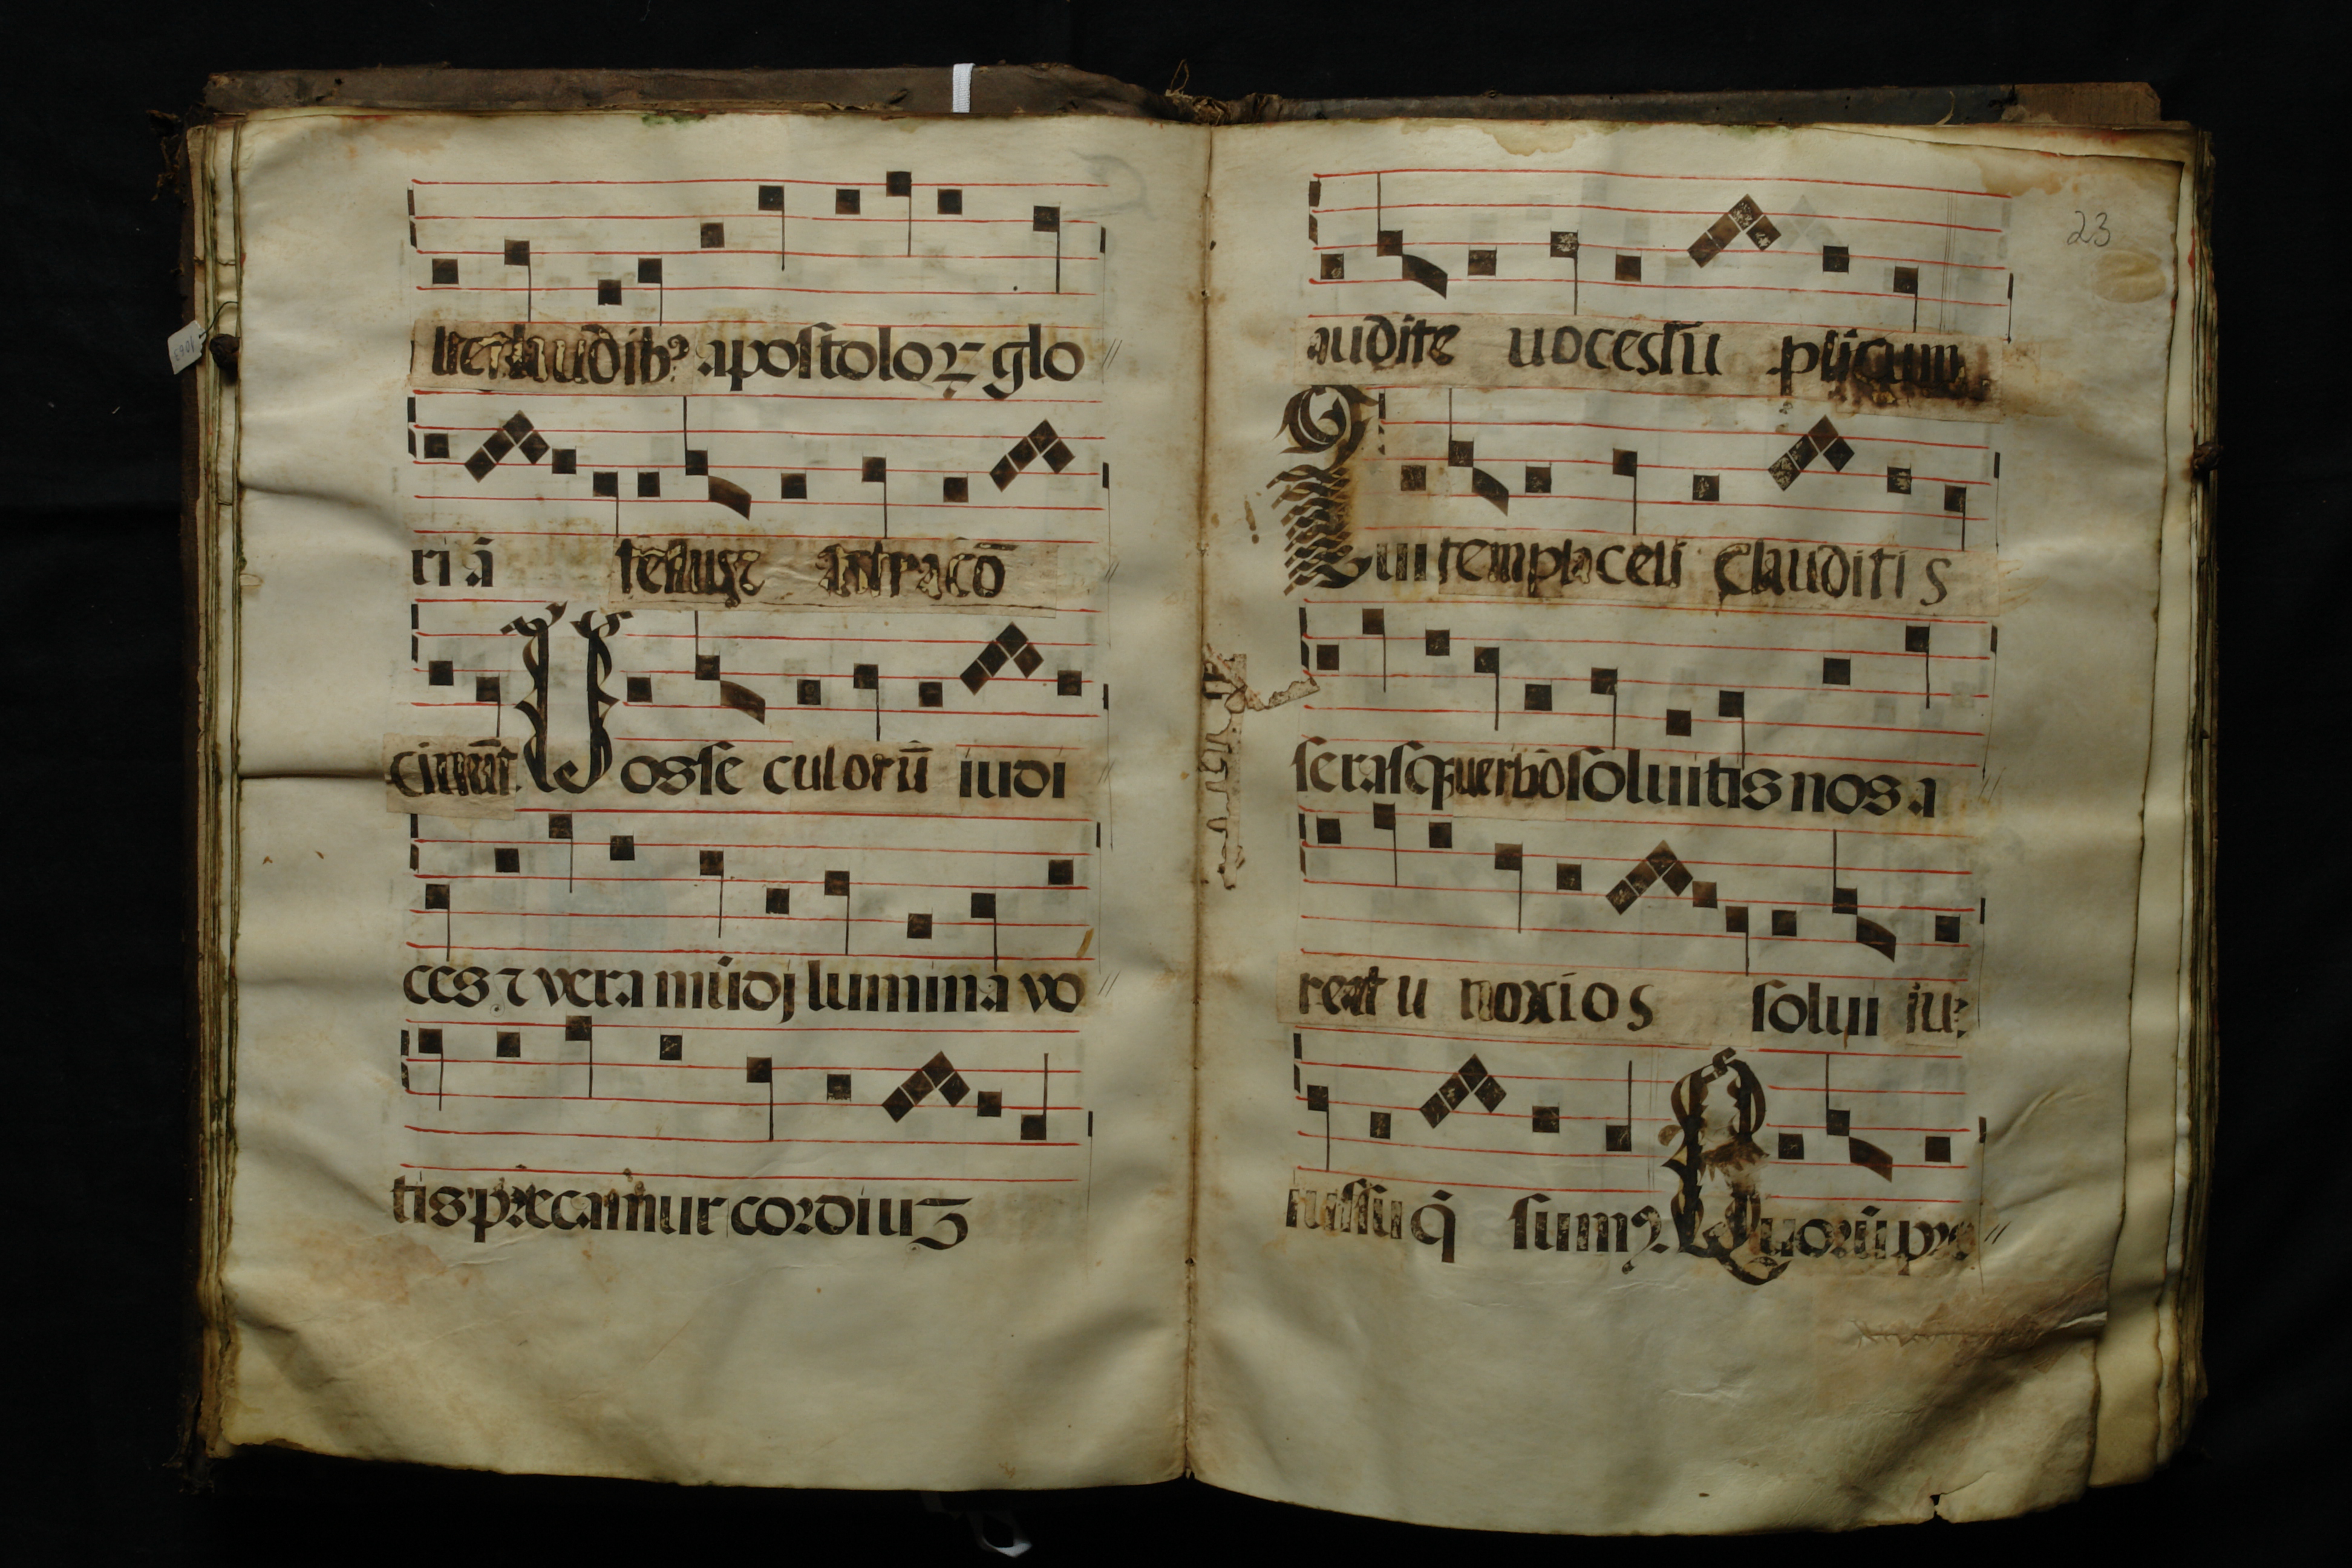 ucr laudib9 apostoloꝝ glo
ri ā tellus et astra cō
cinūt Uosse culorū iudi
ces ⁊ vera mūdj lumina vo
tis præcamur cordiuʒ
23
audite uoces sū plicum
Qui templa celi clauditis
serasqꝫ uerbo soluitis nos a
reatu noxios solui iu
 q̄ sum9. Quorū pre